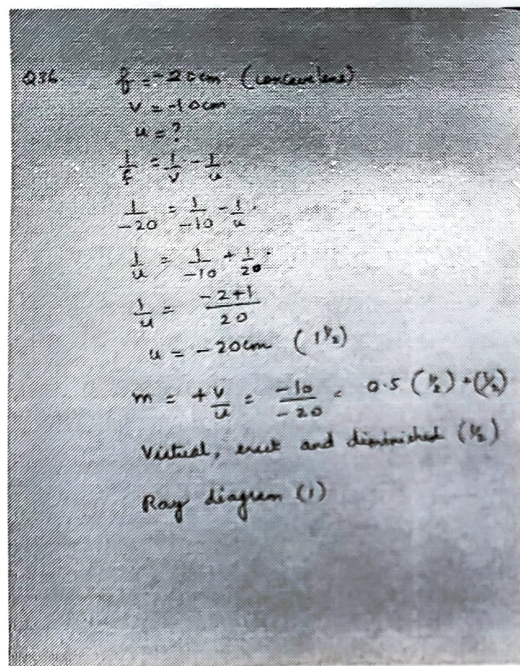 Q36 f = -20cm (concave lens)
v = -10cm
u = ?
1/f = 1/v - 1/u
1/-20 = 1/-10 - 1/u
1/u = 1/-10 + 1/20
1/u = -2+1/20
u = -20cm (1½)
m = +v/u = -10/-20 = 0.5 (½) + (½)
Virtual, erect and diminished (½)
Ray diagram (1)